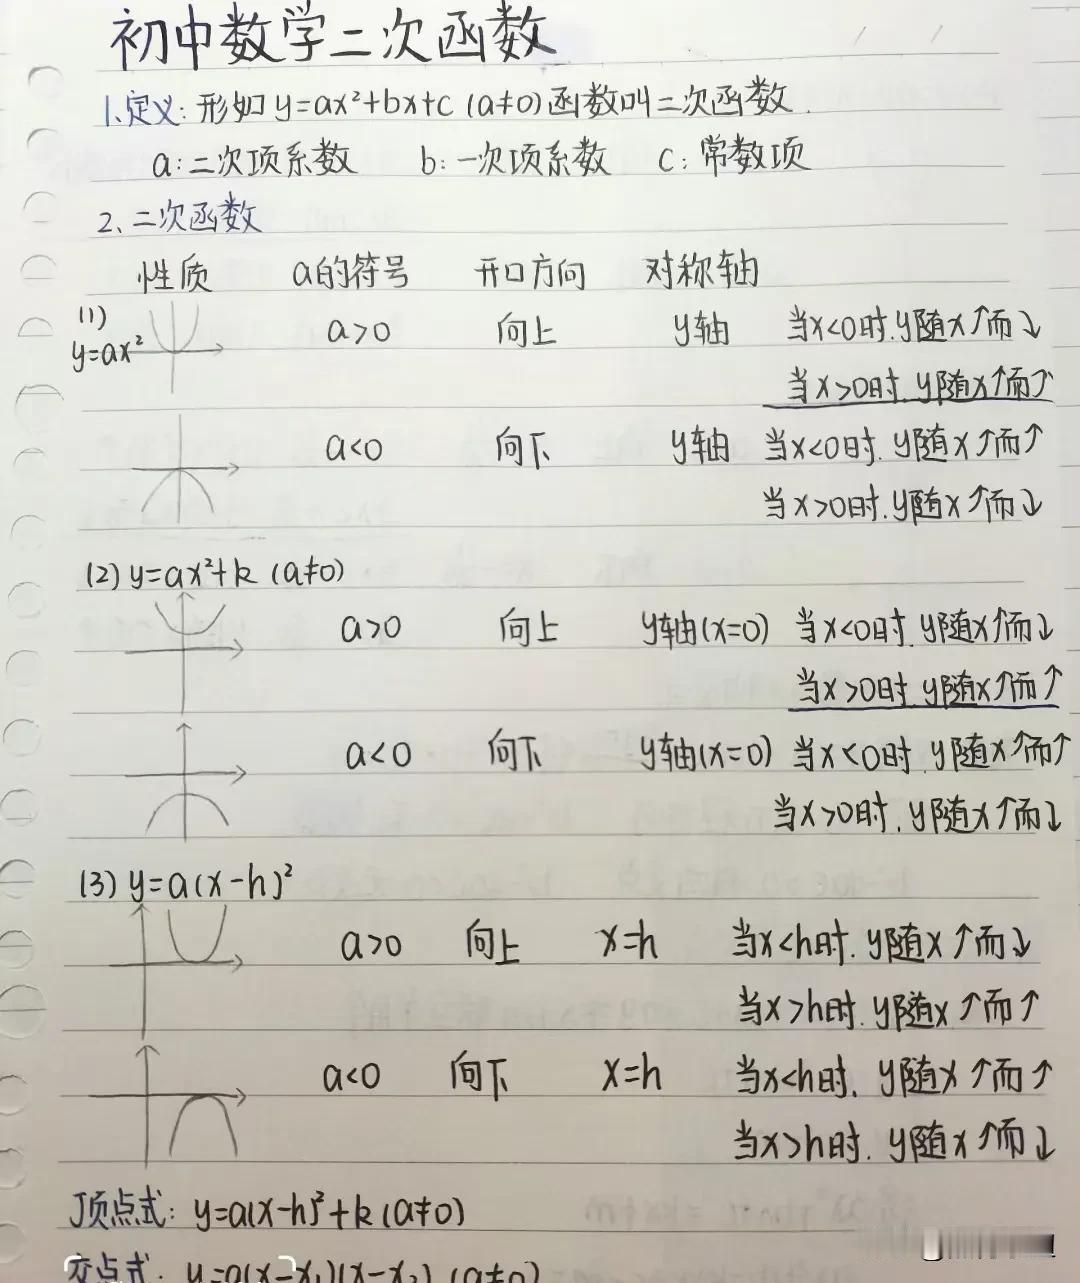 初中数学二次函数
1、定义:形如y=ax²+bx+c (a≠0)函数叫二次函数.
a:二次项系数 b:一次项系数 c:常数项
2、二次函数
性质 a的符号 开口方向 对称轴
(1)
y=ax² a>0 向上 y轴 当x<0时.y随x↑而↓
当x>0时.y随x↑而↑
a<0 向下 y轴 当x<0时.y随x↑而↑
当x>0时.y随x↑而↓
(2) y=ax²+k (a≠0)
a>0 向上 y轴(x=0) 当x<0时.y随x↑而↓
当x>0时.y随x↑而↑
a<0 向下 y轴(x=0) 当x<0时.y随x↑而↑
当x>0时.y随x↑而↓
(3) y=a(x-h)²
a>0 向上 x=h 当x<h时.y随x↑而↓
当x>h时.y随x↑而↑
a<0 向下 x=h 当x<h时.y随x↑而↑
当x>h时.y随x↑而↓
顶点式:y=a(x-h)²+k (a≠0)
交点式:y=a(x-x₁)(x-x₂) (a≠0)